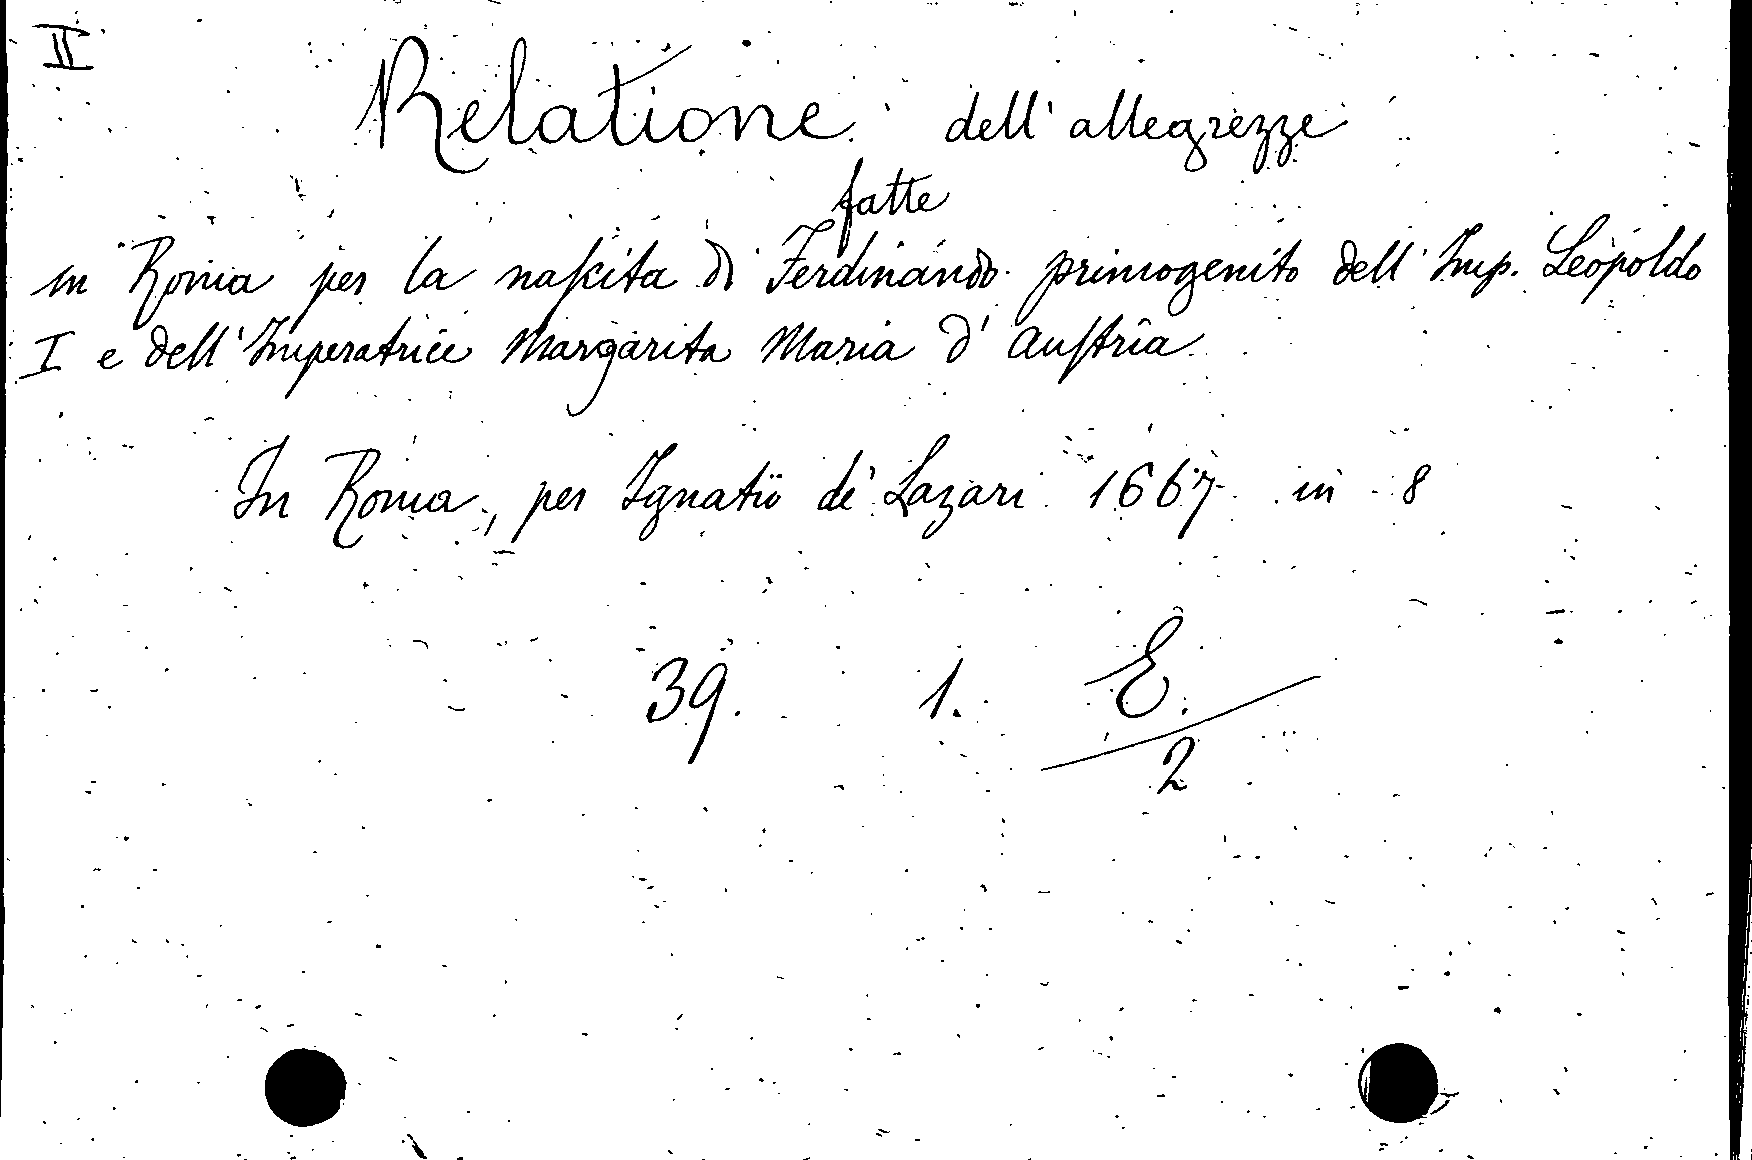 II
Relatione dell' allegrezze
fatte
in Roma per la naſcita di Ferdinando primogenito dell' Imp. Leopoldo
I e dell' Imperatrice Margarita Maria d' Auſtria
In Roma, per Ignatio de Lazari 1667 in 8
39. 1. E.
2